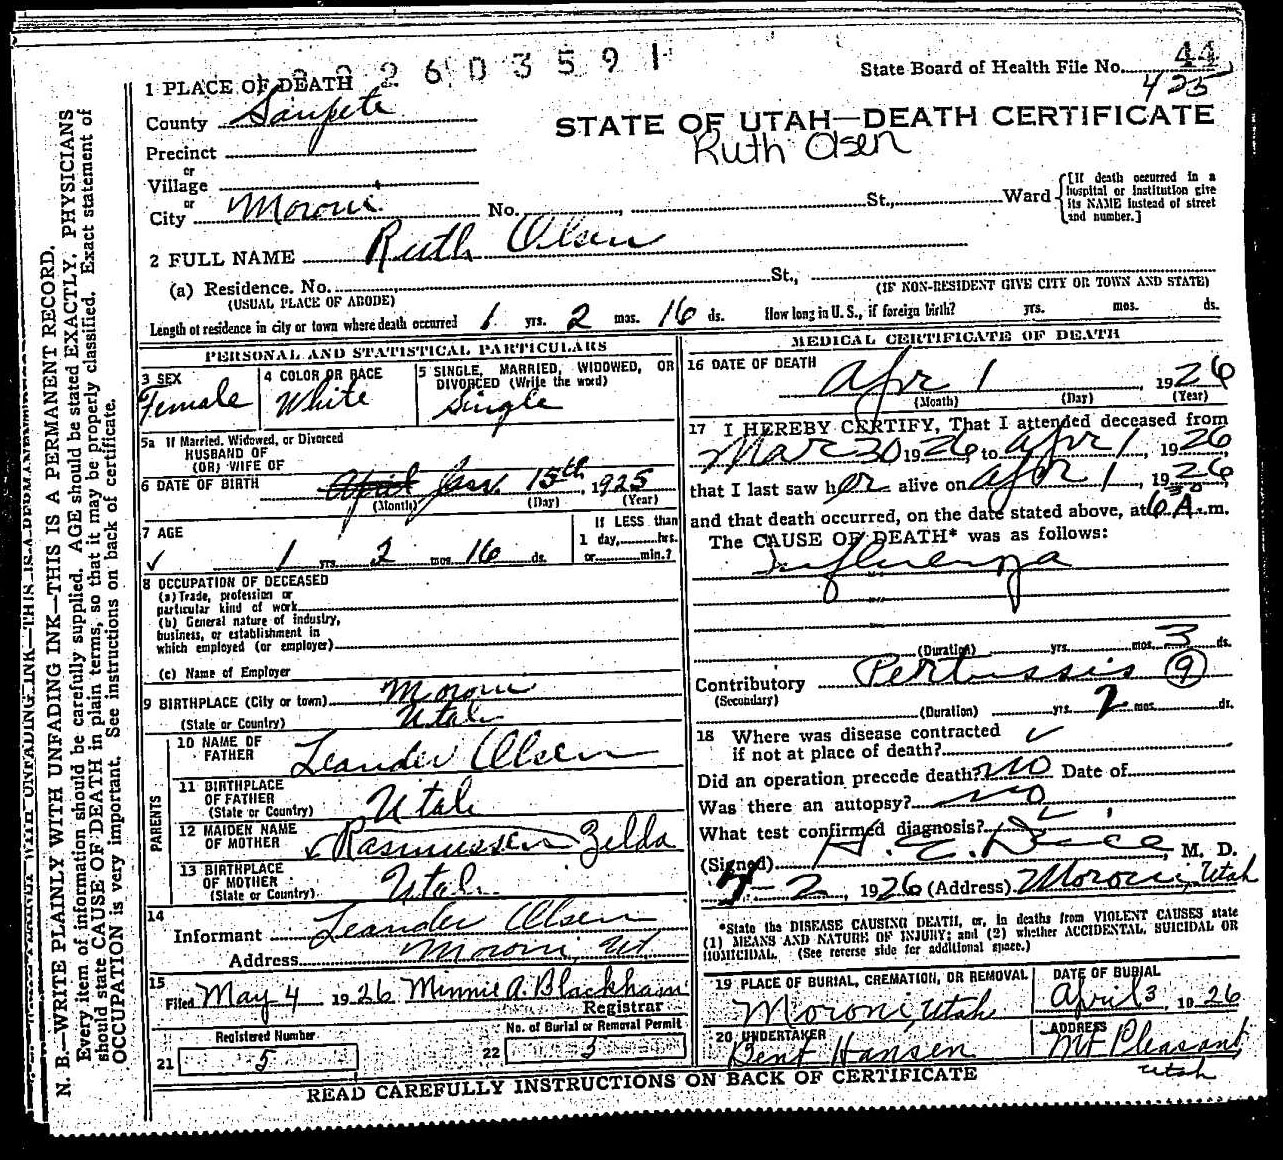 2603591
State Board of Health File No. 44
425
1 PLACE OF DEATH
County Sanpete
STATE OF UTAH—DEATH CERTIFICATE
Ruth Olsen
Precinct
or
Village
or
City Moroni No. , St., Ward
[If death occurred in a hospital or institution give its NAME instead of street and number.]
2 FULL NAME Ruth Olsen
(a) Residence. No. St.,
(USUAL PLACE OF ABODE) (IF NON-RESIDENT GIVE CITY OR TOWN AND STATE)
Length of residence in city or town where death occurred 1 yrs. 2 mos. 16 ds. How long in U. S., if foreign birth? yrs. mos. ds.
PERSONAL AND STATISTICAL PARTICULARS
3 SEX
Female
4 COLOR OR RACE
White
5 SINGLE, MARRIED, WIDOWED, OR DIVORCED (Write the word)
Single
5a If Married, Widowed, or Divorced
HUSBAND OF
(OR) WIFE OF
6 DATE OF BIRTH April Jan. 15th, 1925
(Month) (Day) (Year)
7 AGE
✓ 1 yrs. 2 mos. 16 ds.
If LESS than
1 day, hrs.
or min.?
8 OCCUPATION OF DECEASED
(a) Trade, profession or
particular kind of work
(b) General nature of industry,
business, or establishment in
which employed (or employer)
(c) Name of Employer
9 BIRTHPLACE (City or town) Moroni
(State or Country) Utah
PARENTS
10 NAME OF
FATHER Leander Olsen
11 BIRTHPLACE
OF FATHER
(State or Country) Utah
12 MAIDEN NAME
OF MOTHER ✓ Rasmussen Zelda
13 BIRTHPLACE
OF MOTHER
(State or Country) Utah
14
Informant Leander Olsen
Address Moroni, Ut
15
Filed May 4 1926 Minnie A. Blackham
Registrar
Registered Number
21 5
No. of Burial or Removal Permit
22 3
MEDICAL CERTIFICATE OF DEATH
16 DATE OF DEATH
Apr 1, 1926
(Month) (Day) (Year)
17 I HEREBY CERTIFY, That I attended deceased from
Mar 30 1926, to Apr 1, 1926,
that I last saw her alive on Apr 1, 1926,
and that death occurred, on the date stated above, at 6 30 A. m.
The CAUSE OF DEATH* was as follows:
Influenza
(Duration) yrs. mos. 3 ds.
Contributory Pertussis 9
(Secondary)
(Duration) yrs. 2 mos. ds.
18 Where was disease contracted
if not at place of death? ✓
Did an operation precede death? No Date of
Was there an autopsy? No
What test confirmed diagnosis? ✓
(Signed) , M. D.
2, 1926 (Address) Moroni, Utah
*State the DISEASE CAUSING DEATH, or, in deaths from VIOLENT CAUSES state
(1) MEANS AND NATURE OF INJURY; and (2) whether ACCIDENTAL, SUICIDAL OR
HOMICIDAL. (See reverse side for additional space.)
19 PLACE OF BURIAL, CREMATION, OR REMOVAL
Moroni, Utah
DATE OF BURIAL
April 3 1926
20 UNDERTAKER
Bent Hansen
ADDRESS
Mt Pleasant,
Utah
READ CAREFULLY INSTRUCTIONS ON BACK OF CERTIFICATE
N. B.—WRITE PLAINLY WITH UNFADING INK—THIS IS A PERMANENT RECORD.
Every item of information should be carefully supplied. AGE should be stated EXACTLY. PHYSICIANS
should state CAUSE OF DEATH in plain terms, so that it may be properly classified. Exact statement of
OCCUPATION is very important. See instructions on back of certificate.